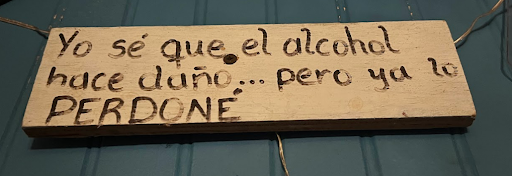 Yo sé que el alcohol
hace daño... pero ya lo
PERDONÉ